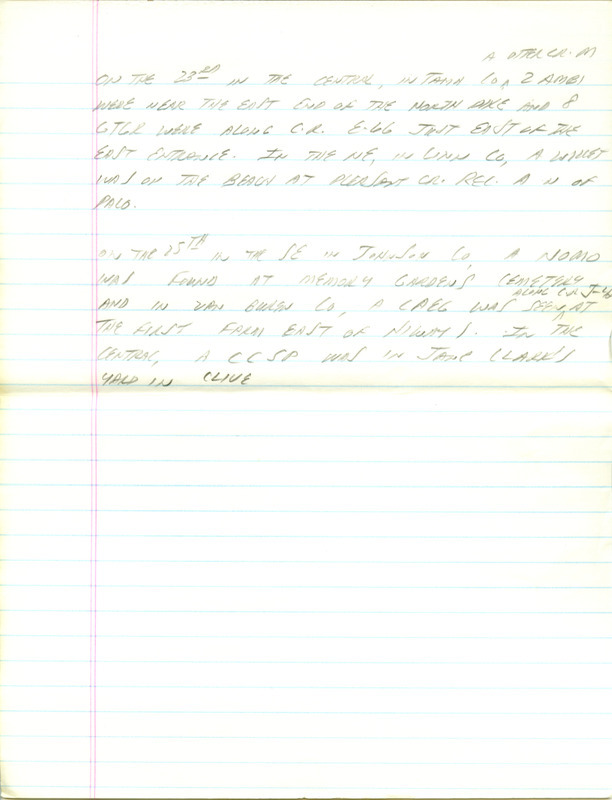 A OTTER CR. M
ON THE 23RD IN THE CENTRAL, IN TAMA CO, 2 AMBI
WERE NEAR THE EAST END OF THE NORTH DIKE AND 8
GTGR WERE ALONG C.R. E-66 JUST EAST OF THE
EAST ENTRANCE. IN THE NE, IN LINN CO, A WILLET
WAS ON THE BEACH AT PLEASANT CR. REC. A N OF
PALO.
ON THE 25TH IN THE SE IN JOHNSON CO, A NOMO
WAS FOUND AT MEMORY GARDENS CEMETERY
ALONG C.R. J-40
AND IN VAN BUREN CO, A CAEG WAS SEEN AT
THE FIRST FARM EAST OF HIWAY 1. IN THE
CENTRAL, A CCSP WAS IN JANE CLARK'S
YARD IN CLIVE